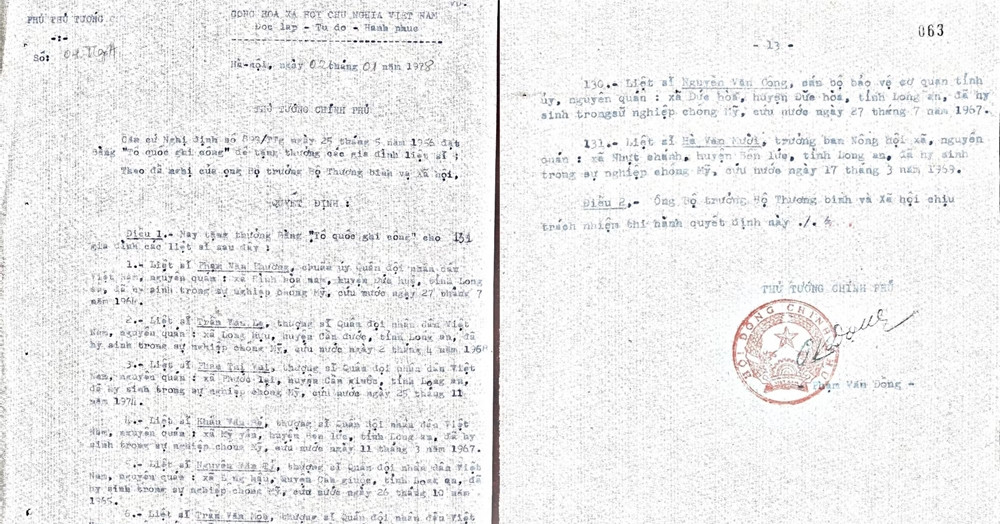 PHỦ THỦ TƯỚNG
-:-
Số:
CỘNG HÒA XÃ HỘI CHỦ NGHĨA VIỆT NAM
Độc lập - Tự do - Hạnh phúc
Hà-nội, ngày 02 tháng 01 năm 1978
THỦ TƯỚNG CHÍNH PHỦ
Căn cứ Nghị định số ngày 25 tháng 5 năm 1956 đặt
bằng "Tổ quốc ghi công" để tặng thưởng các gia đình liệt sĩ ;
Theo đề nghị của ông Bộ trưởng Bộ Thương binh và Xã hội,
QUYẾT ĐỊNH :
Điều 1.- Nay tặng thưởng Bằng "Tổ quốc ghi công" cho 131
gia đình các liệt sĩ sau đây :
1.- Liệt sĩ Phạm Văn , chuẩn úy Quân đội nhân dân
Việt Nam, nguyên quán : xã Bình Hòa nam, huyện Đức huệ, tỉnh Long
an, đã hy sinh trong sự nghiệp chống Mỹ, cứu nước ngày 27 tháng 7
năm 1964.
2.- Liệt sĩ Trần Văn , thượng sĩ Quân đội nhân dân Việt
Nam, nguyên quán : xã Long Hựu, huyện Cần đước, tỉnh Long an, đã
hy sinh trong sự nghiệp chống Mỹ, cứu nước ngày 2 tháng 4 năm
3.- Liệt sĩ , thượng sĩ Quân đội nhân dân Việt
Nam, nguyên quán : xã Phước lại, huyện Cần giuộc, tỉnh Long an,
đã hy sinh trong sự nghiệp chống Mỹ, cứu nước ngày 25 tháng 11
năm 1974.
4.- Liệt sĩ Văn , thượng sĩ Quân đội nhân dân Việt
Nam, nguyên quán : xã Mỹ yên, huyện Bến lức, tỉnh Long an, đã hy
sinh trong sự nghiệp chống Mỹ, cứu nước ngày 11 tháng 3 năm 1967.
Liệt sĩ Nguyễn Văn , thượng sĩ Quân đội nhân dân Việt
Nam, nguyên quán : xã Long hậu, huyện Cần giuộc, tỉnh Long an, đã
hy sinh trong sự nghiệp chống Mỹ, cứu nước ngày 26 tháng 10 năm
1965.
6.- Liệt sĩ Trần Văn , thượng sĩ Quân đội nhân dân Việt
063
- 13 -
130.- Liệt sĩ Nguyễn Văn Công, cán bộ bảo vệ cơ quan tỉnh
ủy, nguyên quán : xã Đức hòa, huyện Đức hòa, tỉnh Long an, đã hy
sinh trong sự nghiệp chống Mỹ, cứu nước ngày 27 tháng 7 năm 1967.
131.- Liệt sĩ Hà Văn Mười, trưởng ban Nông hội xã, nguyên
quán : xã Nhựt chánh, huyện Bến lức, tỉnh Long an, đã hy sinh
trong sự nghiệp chống Mỹ, cứu nước ngày 17 tháng 3 năm 1969.
Điều 2.- Ông Bộ trưởng Bộ Thương binh và Xã hội chịu
trách nhiệm thi hành quyết định này ./.
THỦ TƯỚNG CHÍNH PHỦ
HỘI ĐỒNG CHÍNH PHỦ
- Phạm Văn Đồng -